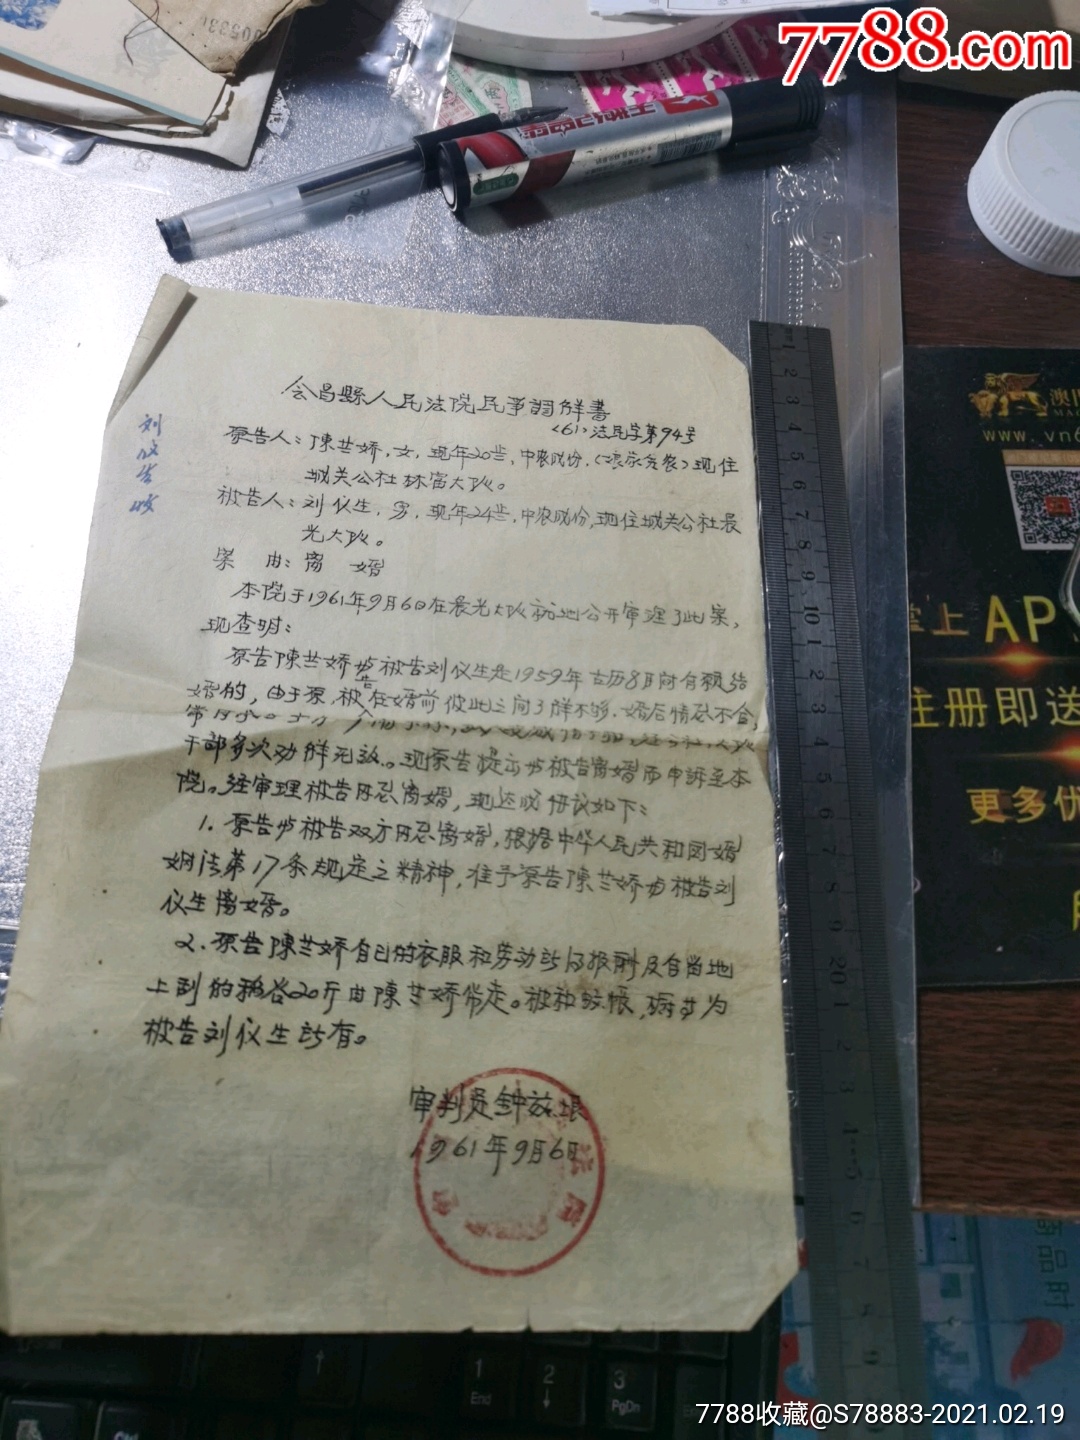 7788.com
会昌縣人民法院民事調解書
(61)法民字第94号
原告人：陳兰娇，女，现年20岁，中农成份，现住
城关公社林富大队。
被告人：刘仪生，男，现年24岁，中农成份，现住城关公社晨
光大队。
案由：离婚
本院于1961年9月6日在晨光大队就地公开审理了此案，
现查明：
原告陳兰娇与被告刘仪生是1959年古历8月自願结
婚的，由于原、被告在婚前彼此之间了解不够，婚后情感不合，
干部多次劝解无效。现原告提出与被告离婚而申訴至本
院。经审理被告同意离婚，现达成协议如下：
1. 原告与被告双方同意离婚，根据中华人民共和国婚
姻法第17条规定之精神，准予原告陳兰娇与被告刘
仪生离婚。
2. 原告陳兰娇自己的衣服和劳动所得报酬及自留地
上到的稻谷20斤由陳兰娇带走。被和蚊帐，归为
被告刘仪生所有。
审判员 钟
1961年9月6日
刘仪生收
澳门
www.vn6
掌上 AP
注册即送
更多优
商品时
1
End
2
3
PgDn
7788收藏@S78883-2021.02.19